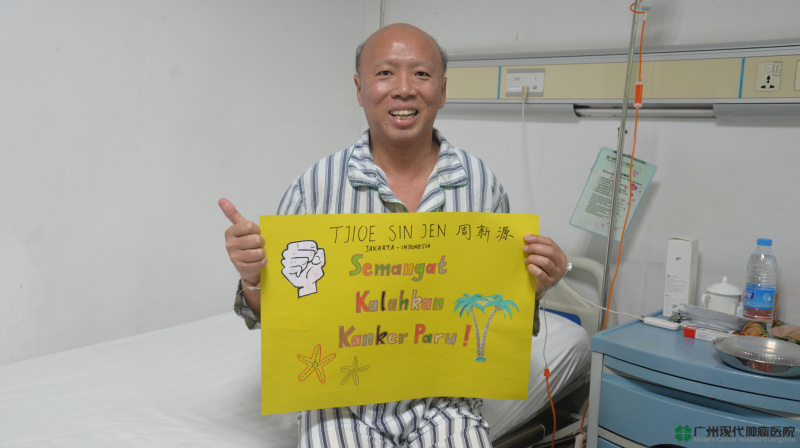 TJIOE SIN JEN 周新源
JAKARTA - INDONESIA
Semangat
Kalahkan
Kanker Paru !
广州现代肿瘤医院